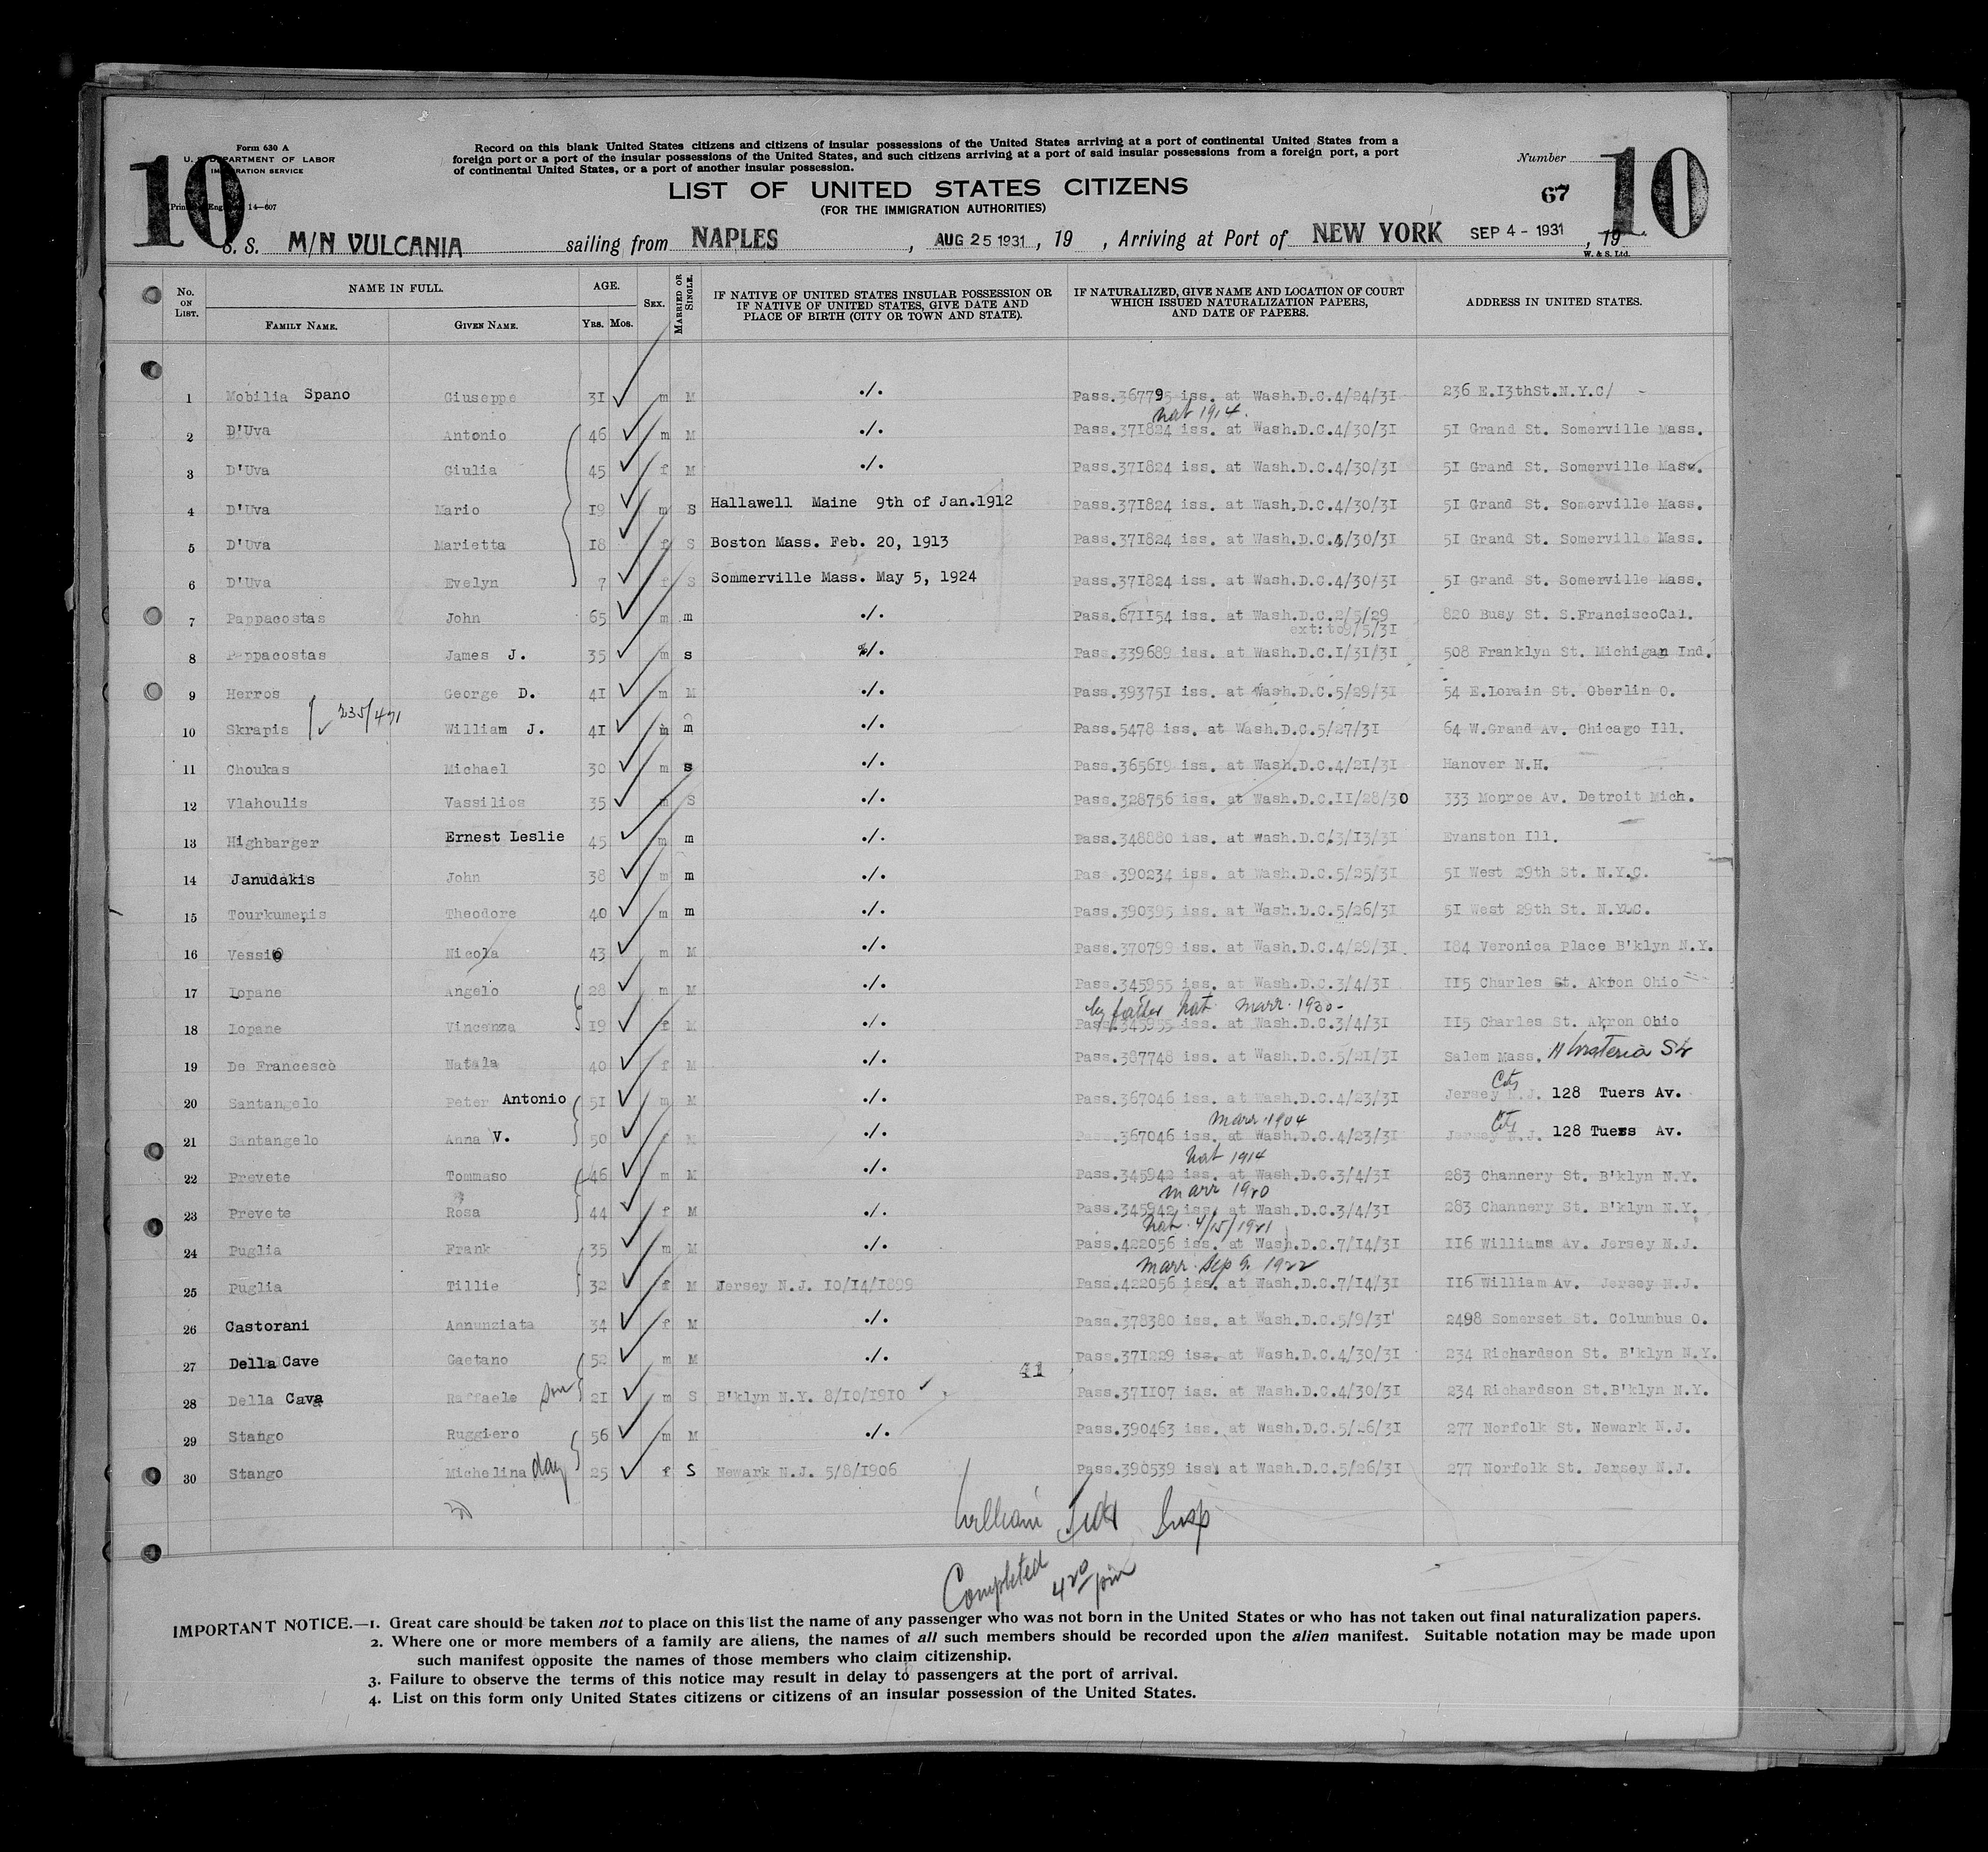 Form 630 A
U. S. DEPARTMENT OF LABOR
IMMIGRATION SERVICE
14—607
10
Record on this blank United States citizens and citizens of insular possessions of the United States arriving at a port of continental United States from a
foreign port or a port of the insular possessions of the United States, and such citizens arriving at a port of said insular possessions from a foreign port, a port
of continental United States, or a port of another insular possession.
Number
10
67
LIST OF UNITED STATES CITIZENS
(FOR THE IMMIGRATION AUTHORITIES)
S. S. M/N VULCANIA sailing from NAPLES , AUG 25 1931 , 19 , Arriving at Port of NEW YORK SEP 4 - 1931 , 19
W. & S. Ltd.
No. ON LIST. NAME IN FULL. AGE. SEX. MARRIED OR SINGLE. IF NATIVE OF UNITED STATES INSULAR POSSESSION OR IF NATIVE OF UNITED STATES, GIVE DATE AND PLACE OF BIRTH (CITY OR TOWN AND STATE). IF NATURALIZED, GIVE NAME AND LOCATION OF COURT WHICH ISSUED NATURALIZATION PAPERS, AND DATE OF PAPERS. ADDRESS IN UNITED STATES.
FAMILY NAME. GIVEN NAME. YRS. MOS.
1 Mobilia Spano Giuseppe 31 m M ./. Pass.36779 iss. at Wash.D.C.4/24/31 236 E.13thSt.N.Y.C/
nat 1914.
2 D'Uva Antonio 46 m M ./. Pass.371824 iss. at Wash.D.C.4/30/31 51 Grand St. Somerville Mass.
3 D'Uva Giulia 45 f M ./. Pass.371824 iss. at Wash.D.C.4/30/31 51 Grand St. Somerville Mass.
4 D'Uva Mario 19 m S Hallawell Maine 9th of Jan.1912 Pass.371824 iss. at Wash.D.C.4/30/31 51 Grand St. Somerville Mass.
5 D'Uva Marietta 18 f S Boston Mass. Feb. 20, 1913 Pass.371824 iss. at Wash.D.C.4/30/31 51 Grand St. Somerville Mass.
6 D'Uva Evelyn 7 f S Sommerville Mass. May 5, 1924 Pass.371824 iss. at Wash.D.C.4/30/31 51 Grand St. Somerville Mass.
7 Pappacostas John 65 m m ./. Pass.671154 iss. at Wash.D.C.2/5/29 820 Busy St. S.FranciscoCal.
ext:to9/5/31
8 Pappacostas James J. 35 m s ./. Pass.339689 iss. at Wash.D.C.1/31/31 508 Franklyn St. Michigan Ind.
9 Herros George D. 41 m M ./. Pass.393751 iss. at Wash.D.C.5/29/31 54 E.Lorain St. Oberlin O.
235/471
10 Skrapis William J. 41 m m ./. Pass.5478 iss. at Wash.D.C.5/27/31 64 W.Grand Av. Chicago Ill.
11 Choukas Michael 30 m s ./. Pass.365619 iss. at Wash.D.C.4/21/31 Hanover N.H.
12 Vlahoulis Vassilios 35 m S ./. Pass.328756 iss. at Wash.D.C.11/28/30 333 Monroe Av. Detroit Mich.
13 Highbarger Ernest Leslie 45 m m ./. Pass.348880 iss. at Wash.D.C.3/13/31 Evanston Ill.
14 Janudakis John 38 m m ./. Pass.390234 iss. at Wash.D.C.5/25/31 51 West 29th St. N.Y.C.
15 Tourkumenis Theodore 40 m m ./. Pass.390395 iss. at Wash.D.C.5/26/31 51 West 29th St. N.Y.C.
16 Vessio Nicola 43 m M ./. Pass.370799 iss. at Wash.D.C.4/29/31. 184 Veronica Place B'klyn N.Y.
17 Lopane Angelo 28 m M ./. Pass.345955 iss. at Wash.D.C.3/4/31 115 Charles St. Akron Ohio
by father nat. marr. 1930-
18 Lopane Vincenza 19 f M ./. Pass.345955 iss. at Wash.D.C.3/4/31 115 Charles St. Akron Ohio
19 De Francesco Natala 40 f M ./. Pass.387748 iss. at Wash.D.C.5/21/31 Salem Mass. 11 Wisteria St
City
20 Santangelo Peter Antonio 51 m M ./. Pass.367046 iss. at Wash.D.C.4/23/31 Jersey N.J. 128 Tuers Av.
marr. 1904 City
21 Santangelo Anna V. 50 f M ./. Pass.367046 iss. at Wash.D.C.4/23/31 Jersey N.J. 128 Tuers Av.
nat 1914
22 Prevete Tommaso 46 m M ./. Pass.345942 iss. at Wash.D.C.3/4/31 283 Channery St. B'klyn N.Y.
marr 1920
23 Prevete Rosa 44 f M ./. Pass.345942 iss. at Wash.D.C.3/4/31 283 Channery St. B'klyn N.Y.
nat. 4/15/1921
24 Puglia Frank 35 m M ./. Pass.422056 iss. at Wash.D.C.7/14/31 116 Williams Av. Jersey N.J.
marr. Sep 9. 1922
25 Puglia Tillie 32 f M Jersey N.J. 10/14/1899 Pass.422056 iss. at Wash.D.C.7/14/31 116 William Av. Jersey N.J.
26 Castorani Annunziata 34 f M ./. Pass.378380 iss. at Wash.D.C.5/9/31 2498 Somerset St. Columbus O.
27 Della Cave Gaetano 52 m M ./. Pass.371229 iss. at Wash.D.C.4/30/31 234 Richardson St. B'klyn N.Y.
41
28 Della Cava Raffaele son 21 m S B'klyn N.Y. 8/10/1910 Pass.371107 iss. at Wash.D.C.4/30/31 234 Richardson St.B'klyn N.Y.
29 Stango Ruggiero 56 m M ./. Pass.390463 iss. at Wash.D.C.5/26/31 277 Norfolk St. Newark N.J.
30 Stango Michelina dau 25 f S Newark N.J. 5/8/1906 Pass.390539 iss. at Wash.D.C.5/26/31 277 Norfolk St. Jersey N.J.
William Insp
Completed 4 20 pm
IMPORTANT NOTICE.—1. Great care should be taken not to place on this list the name of any passenger who was not born in the United States or who has not taken out final naturalization papers.
2. Where one or more members of a family are aliens, the names of all such members should be recorded upon the alien manifest. Suitable notation may be made upon
such manifest opposite the names of those members who claim citizenship.
3. Failure to observe the terms of this notice may result in delay to passengers at the port of arrival.
4. List on this form only United States citizens or citizens of an insular possession of the United States.